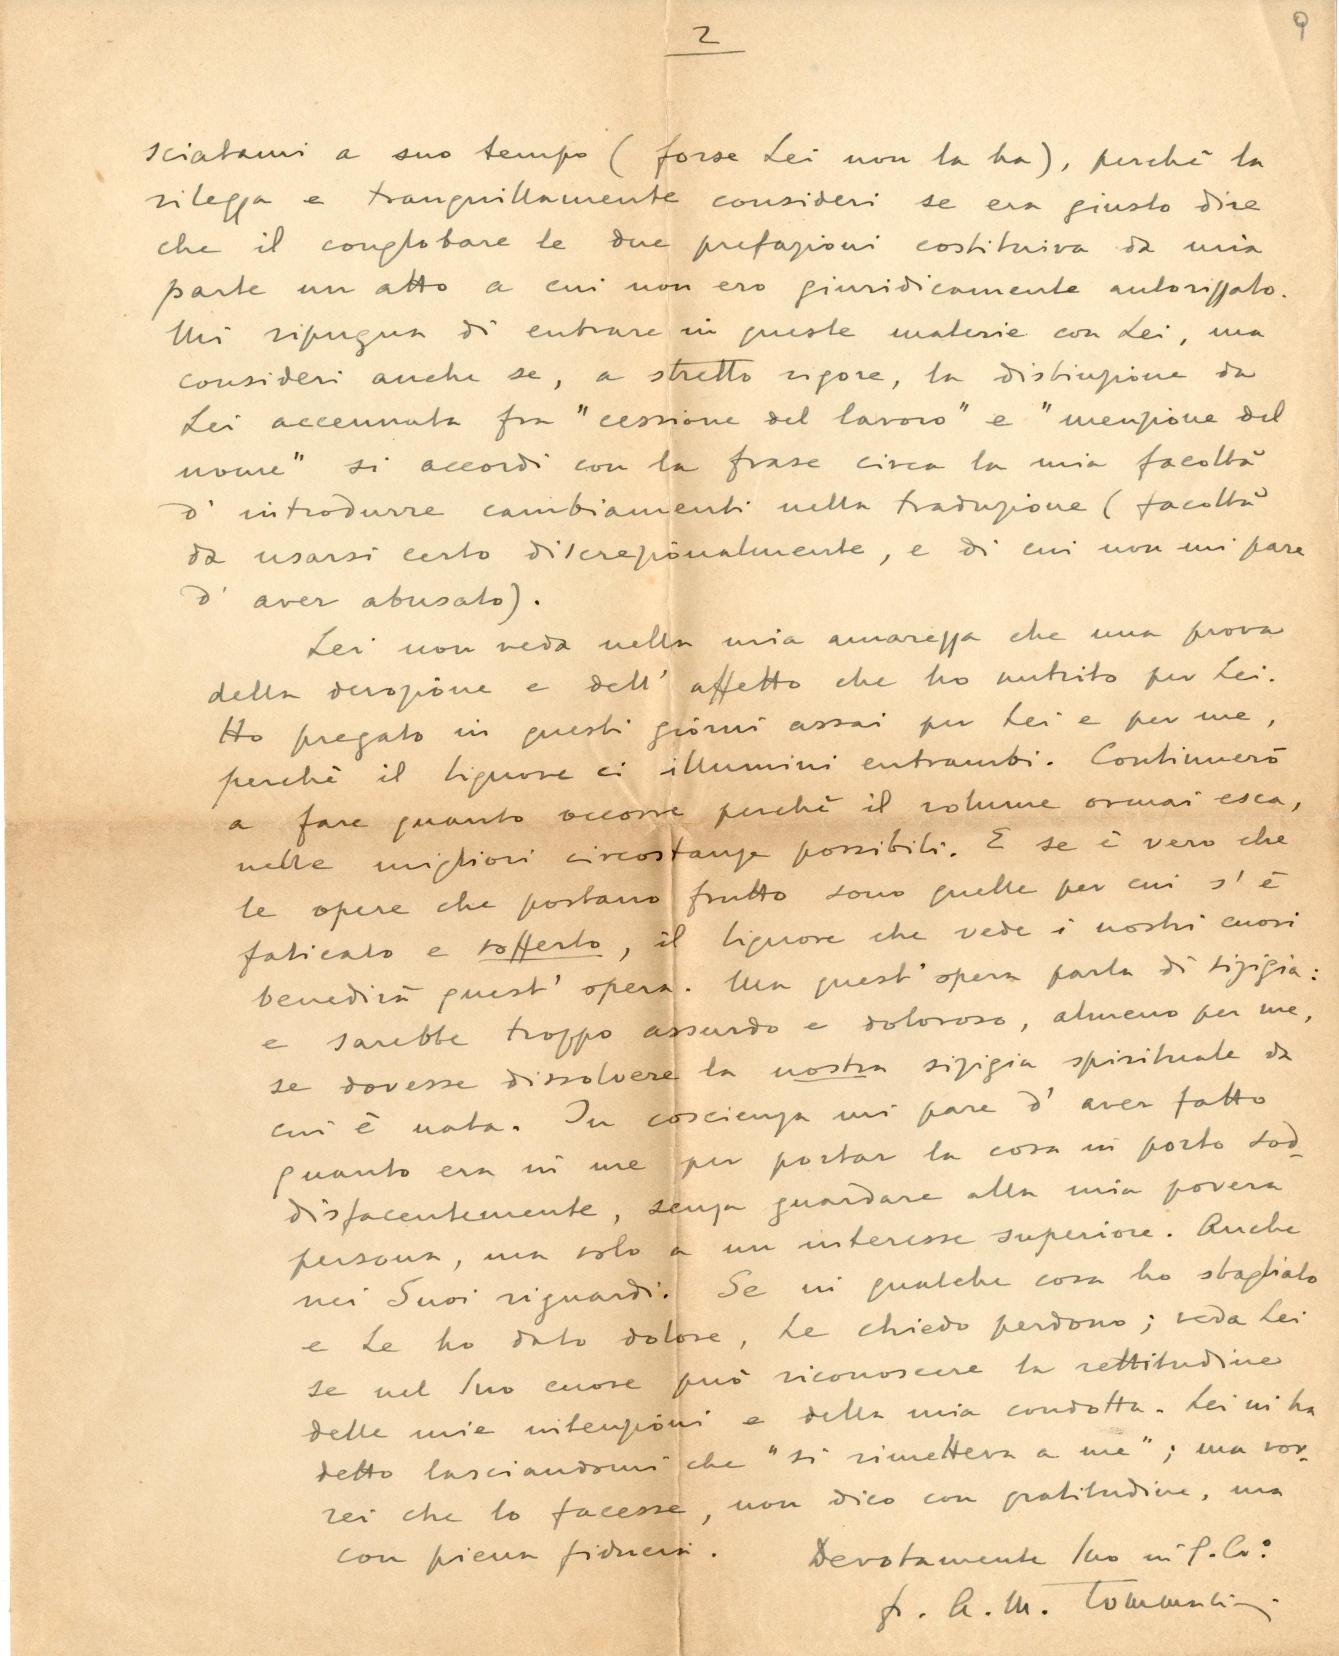 2
9
sciatami a suo tempo (forse Lei non la ha), perchè la
rilegga e tranquillamente consideri se era giusto dire
che il conglobare le due prefazioni costituiva da mia
parte un atto a cui non ero giuridicamente autorizzato.
Mi ripugna di entrare in queste materie con Lei, ma
consideri anche se, a stretto rigore, la distinzione da
Lei accennata fra "cessione del lavoro" e "menzione del
nome" si accordi con la frase circa la mia facoltà
d'introdurre cambiamenti nella traduzione (facoltà
da usarsi certo discrezionalmente, e di cui non mi pare
d'aver abusato).
Lei non veda nella mia amarezza che una prova
della devozione e dell'affetto che ho nutrito per Lei.
Ho pregato in questi giorni assai per Lei e per me,
perchè il Signore ci illumini entrambi. Continuerò
a fare quanto occorre perchè il volume ormai esca,
nelle migliori circostanze possibili. E se è vero che
le opere che portano frutto sono quelle per cui s'è
faticato e sofferto, il Signore che vede i nostri cuori
benedirà quest'opera. Ma quest'opera parla di sizigia:
e sarebbe troppo assurdo e doloroso, almeno per me,
se dovesse dissolvere la nostra sizigia spirituale da
cui è nata. In coscienza mi pare d'aver fatto
quanto era in me per portar la cosa in porto sod-
disfacentemente, senza guardare alla mia povera
persona, ma solo a un interesse superiore. Anche
nei Suoi riguardi. Se in qualche cosa ho sbagliato
e Le ho dato dolore, Le chiedo perdono; veda Lei
se nel Suo cuore può riconoscere la rettitudine
delle mie intenzioni e della mia condotta. Lei mi ha
detto lasciandomi che "si rimetteva a me"; ma vor-
rei che lo facesse, non dico con gratitudine, ma
con piena fiducia.
Devotamente Suo in G.C.:
fr. A.M. Tommasini.